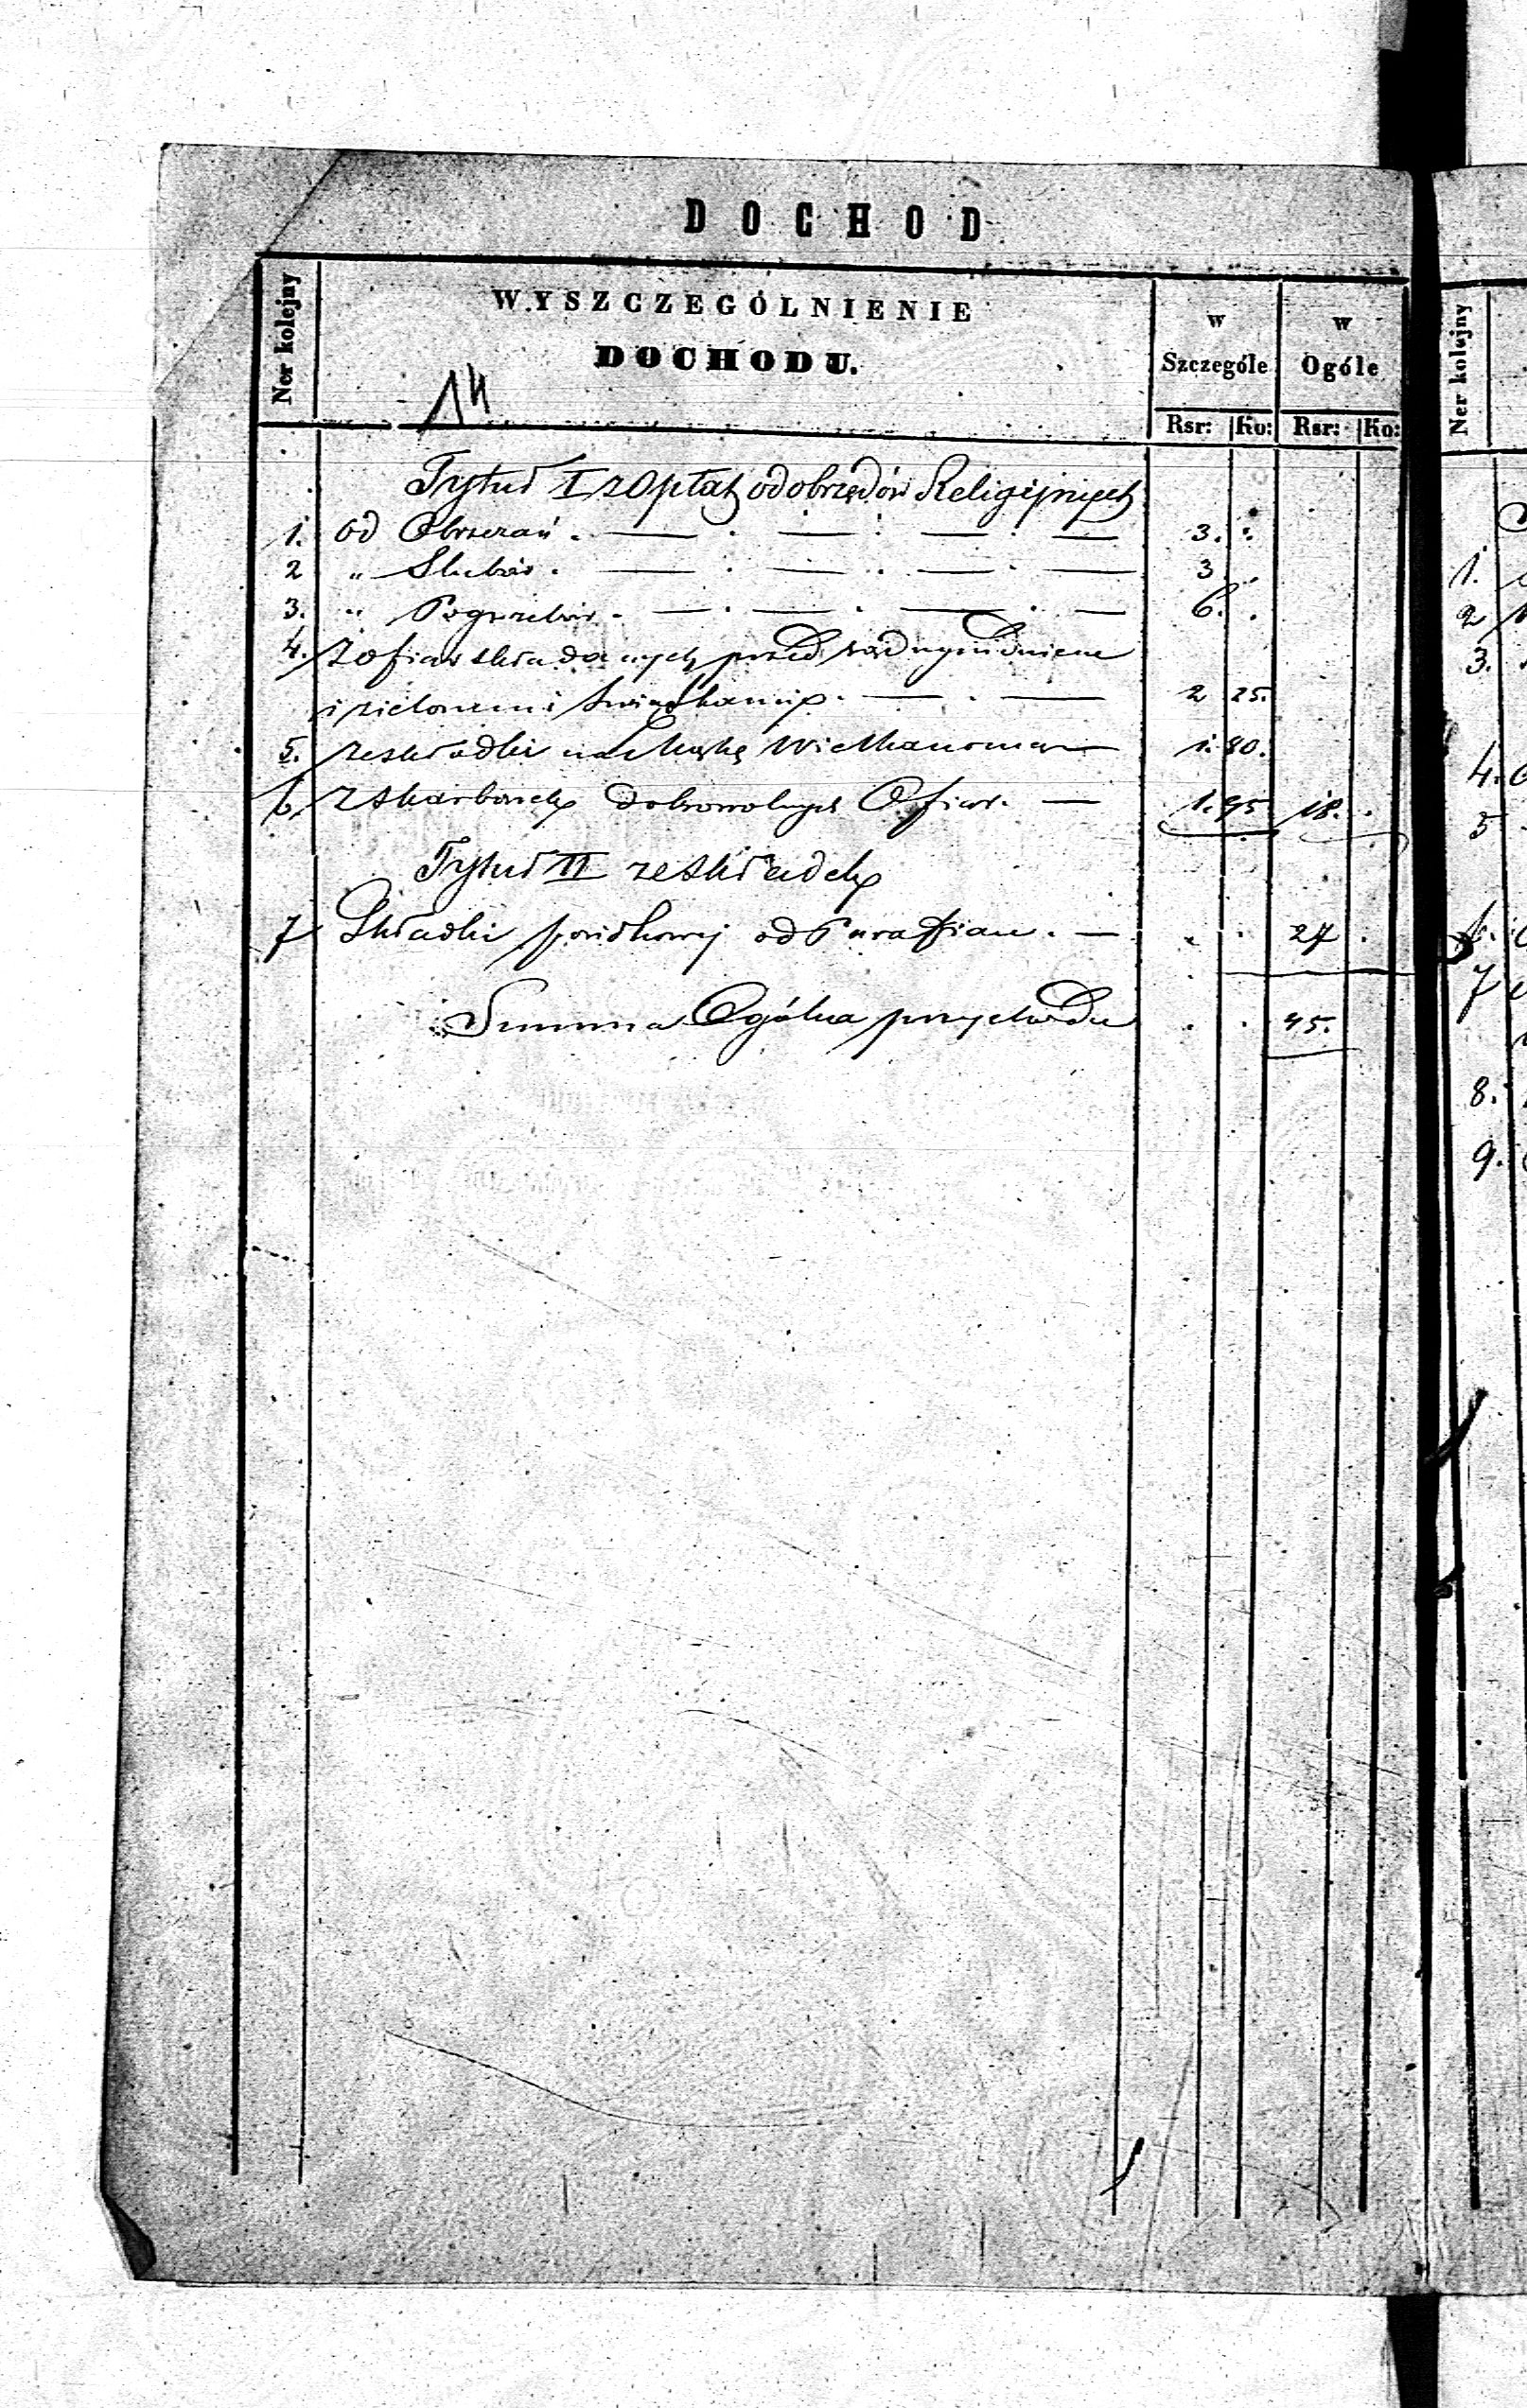 DOCHOD
Ner kolejny
WYSZCZEGÓLNIENIE
DOCHODU.
14
w Szczególe
w Ogóle
Rsr: Ko: Rsr: Ko:
Tytuł I z opłat od obrzędów Religijnych
1. od Obrzezań . — . — . — . — 3.
2 „ Slubów . — . — . — . — 3
3. „ Pogrzebów . — . — . — . — 6.
4. z ofiar składanych przed sądnym dniem
i zielonemi Swiątkami . — . — 2 25.
5. ze składki na Mąkę Wielkanocną — 1. 80.
6. z skarbonek dobrowolnych Ofiar . — 1. 95 18.
Tytuł II ze składek
7 Składki od Parafian . — 27
Summa Ogólna przychodu 45.
Ner kolejny
1.
2
3.
4.
5
6.
7
8.
9.